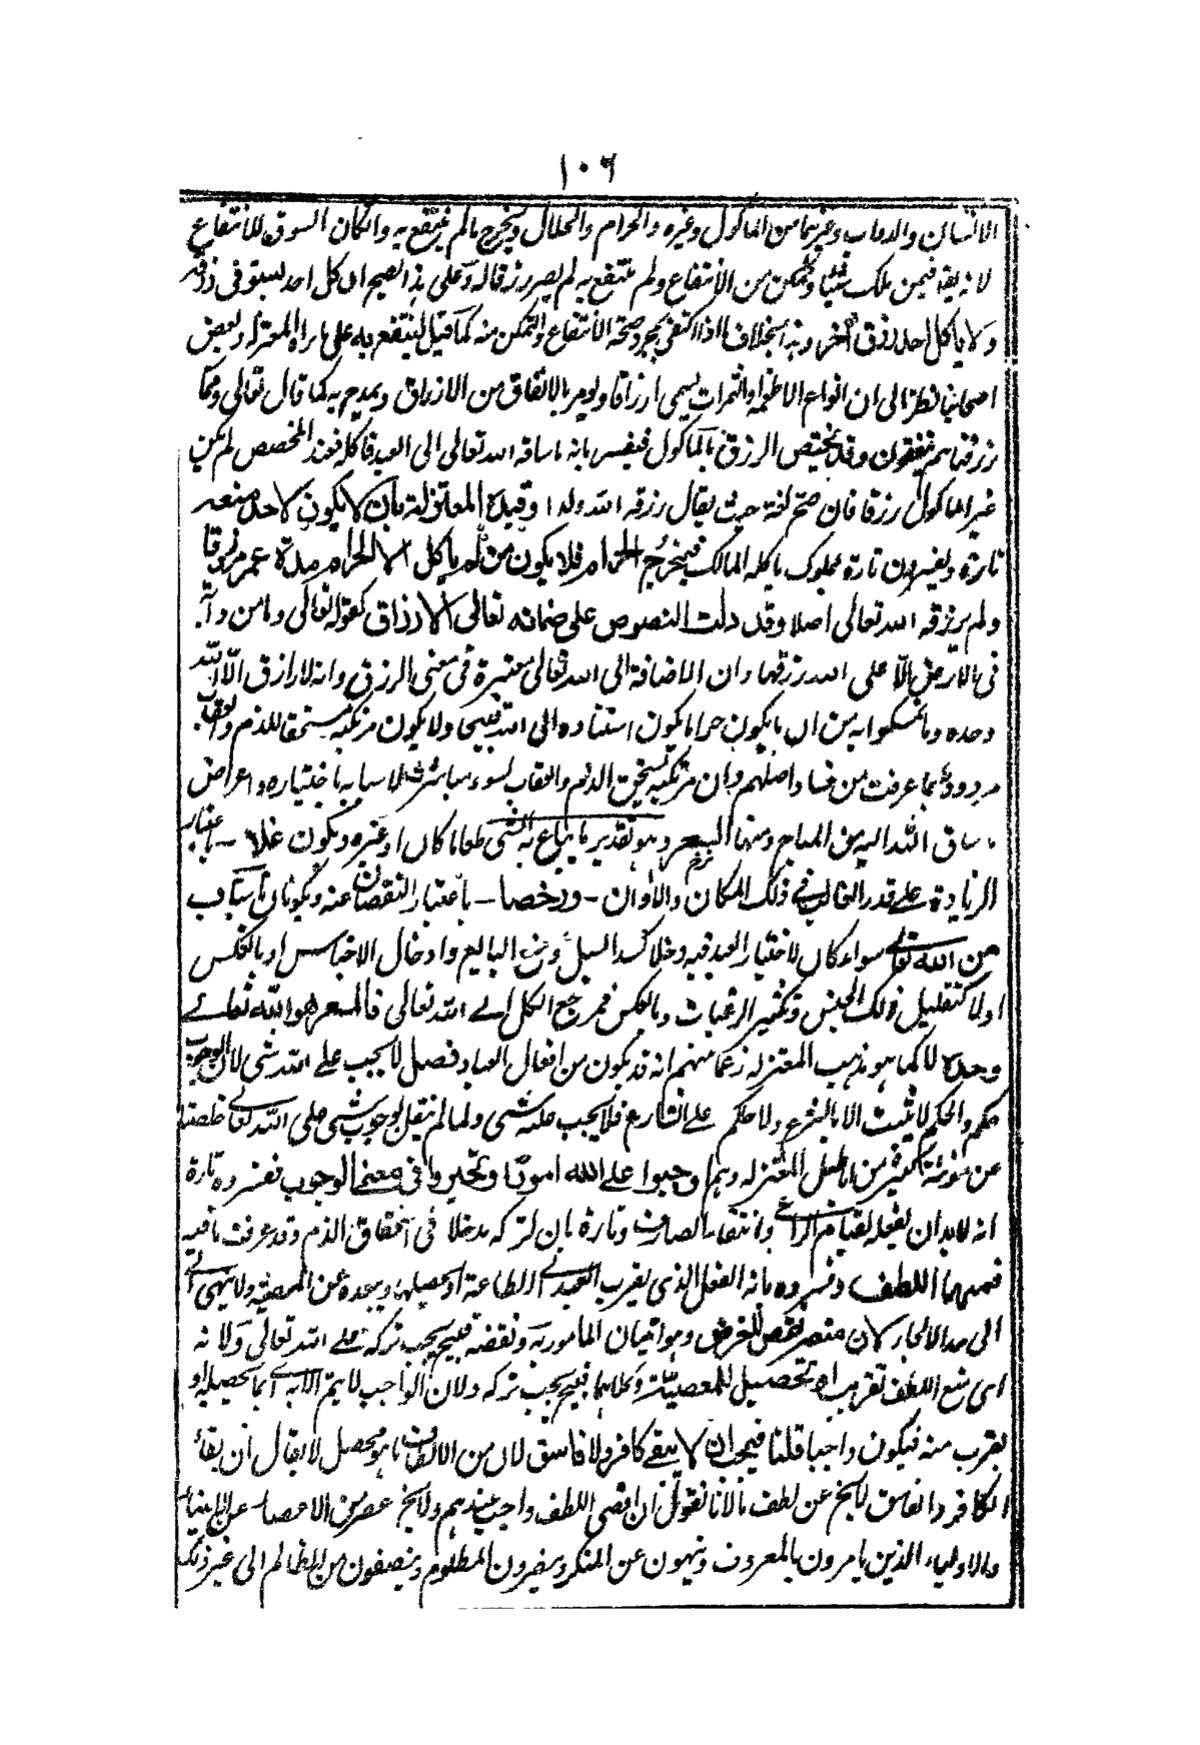 ١٠٦
الانسان والدواب وغيرهما من الماكول وغيره والحرام والحلال ويخرج مالم ينتفع به وانكان السوق للانتفاع
لانه يقال فيمن ملك شيئا وتمكن من الانتفاع ولم ينتفع به لم يصر رزقا له وعلى هذا يصح ان كل احد يستوفى رزقه
ولا ياكل احد رزق آخر وهذا بخلاف ما اذا اكتفى بمجرد صحة الانتفاع والتمكن منه كما قيل لينتفع به على ما راه المعتزله وبعض
اصحابنا نظرا الى ان انواع الاطعمة والثمرات يسمى ارزاقا ويومر بالانفاق من الارزاق ويمدح به كما قال تعالى ومما
رزقناهم ينفقون وقد يختص الرزق بالماكول فيفسر بانه ما ساقه الله تعالى الى العبد فاكله فعند المخصص لم يكن
غير الماكول رزقا فان صح لغة حيث يقال رزقه الله ولدا وقيده المعتزلة بان لا يكون لاحد منعه
تارة ويفسرون تارة بمملوك ياكله المالك فيخرج الحرام فلا يكون من لم ياكل الا الحرام مدة عمره مرزوقا
ولم يرزقه الله تعالى اصلا وقد دلت النصوص على ضمانه تعالى الارزاق كقوله تعالى وما من دابة
فى الارض الا على الله رزقها وان الاضافة الى الله تعالى معتبرة فى معنى الرزق وانه لا رازق الا الله
وحده وما تمسكوا به من ان ما يكون حراما يكون استناده الى الله قبيحا ولا يكون مرتكبه مستحقا للذم والعقاب
مردود بما عرفت من فساد اصلهم وان مرتكبه يستحق الذم والعقاب لسوء مباشرته لاسبابه باختياره واعراض
ما ساق الله اليه من المباح ومنها السعر وهو تقدير ما يباع به الشى طعاما كان او غيره ويكون غلاء - باعتبار
الزيادة على قدر الغالب فى ذلك المكان والاوان - ورخصا - باعتبار النقصان عنه ويكونان باسباب
من الله تعالى سواء كان لاختيار العبد فيه دخلا كسد السبل ومنع البايع وادخال الاجناس او بالعكس
او لا كتقليل ذلك الجنس وتكثير الرغبات وبالعكس فمرجع الكل الى الله تعالى فالمسعر هو الله تعالى
وحده لا كما هو مذهب المعتزله زعما منهم انه قد يكون من افعال العباد فصل لا يجب على الله شى لان الوجوب
حكم والحكم لا يثبت الا بالشرع ولا حكم على الشارع فلا يجب عليه شى ولما لم نقل لوجوب شى على الله تعالى خلصنا
عن مؤنة كثير من اباطيل المعتزله وهم اوجبوا على الله امورا وتحيروا فى معنى الوجوب ففسروه تارة
انه لابد ان يفعله لقيام الداعى وانتفاء الصارف وتارة بان لتركه مدخلا فى استحقاق الذم وقد عرفت ما فيه
فمنها اللطف وفسروه بانه الفعل الذى يقرب العبد الى الطاعة او تحصيلها ويبعده عن المعصية ولا ينهى
الى حد الالجاء لان منعه نقض للغرض وهو اتيان المامور به ونقضه قبيح يجب تركه على الله تعالى ولانه
اى منع اللطف تقريب او تحصيل للمعصية وكلاهما قبيح يجب تركه ولان الواجب لا يتم الا به اما يحصيله او
يقرب منه فيكون واجبا قلنا فيجب ان لا يبقى كافر ولا فاسق لان من الالطاف ما هو محصل لا يقال ان بقاء
الكافر والفاسق لا يخ عن لطف ما لانا نقول ان اقصى اللطف واجب عندهم ولا يخ عصر من الاعصار عن الانبياء
والاولياء الذين يامرون بالمعروف وينهون عن المنكر وينصرون المظلوم وينصفون من الظالم الى غير ذلك